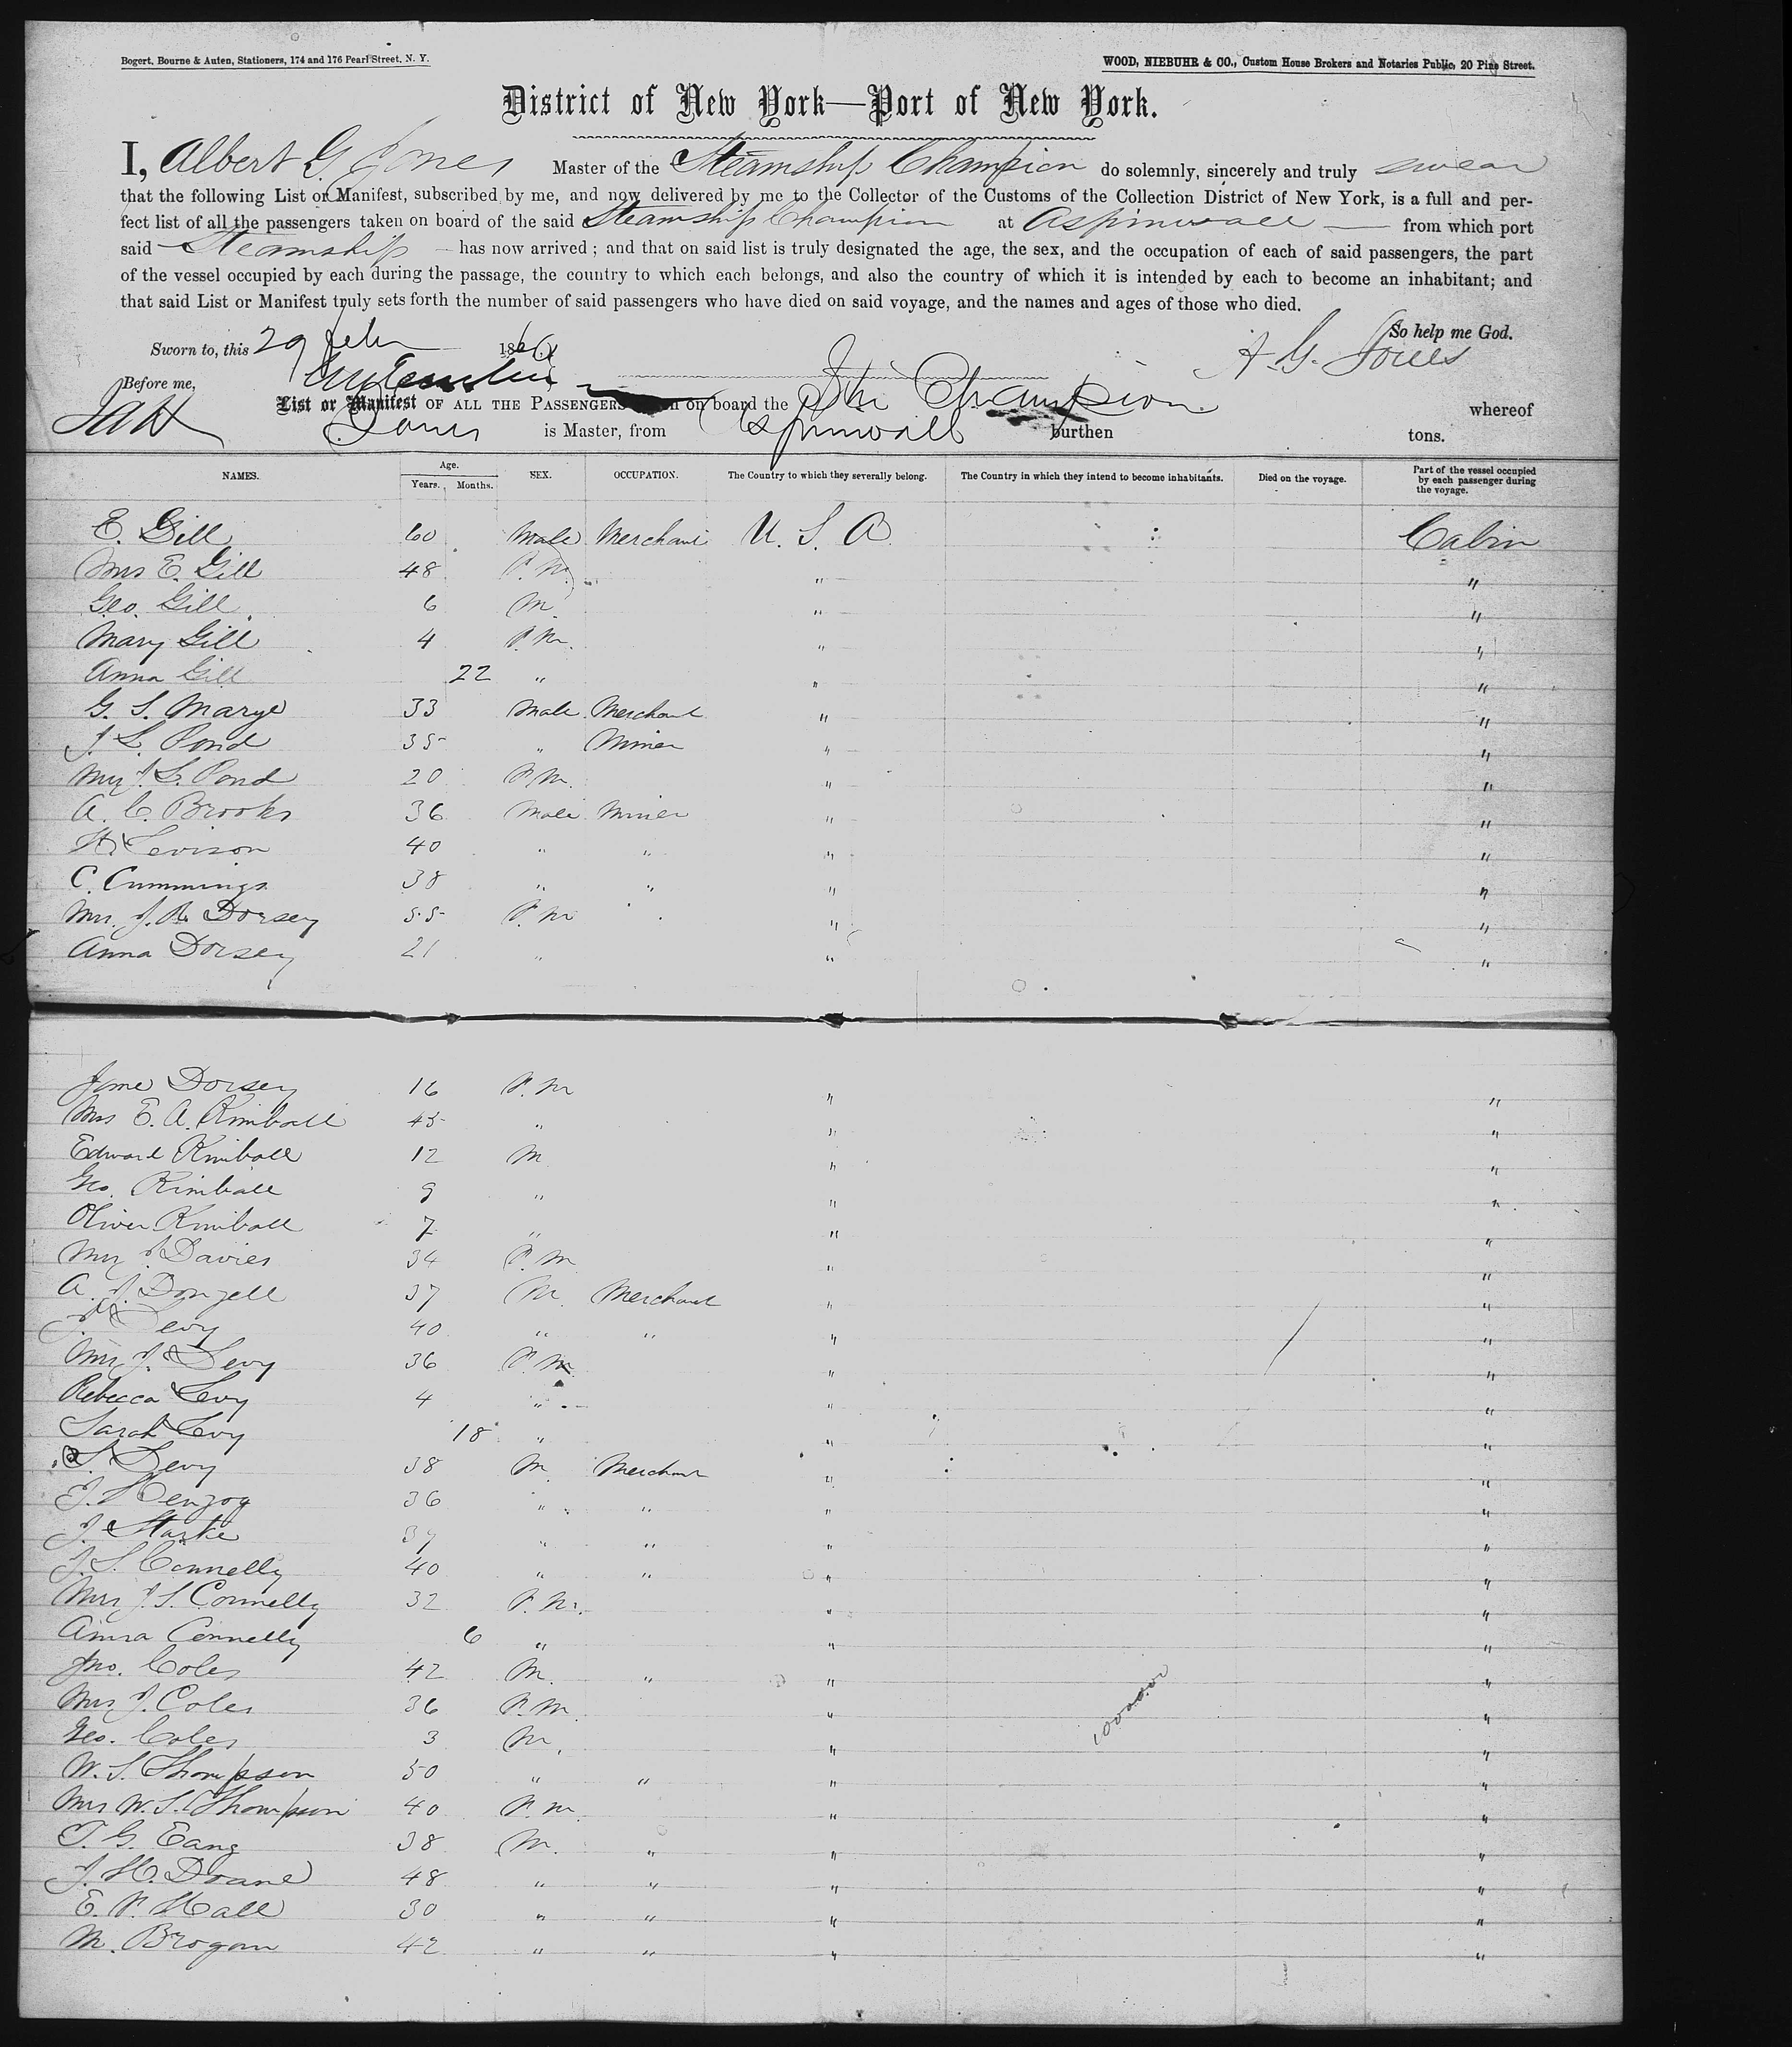 Bogert, Bourne & Auten, Stationers, 174 and 176 Pearl Street, N. Y.
WOOD, NIEBUHR & CO., Custom House Brokers and Notaries Public, 20 Pine Street.
District of New York—Port of New York.
I, Albert G. Jones Master of the Steamship Champion do solemnly, sincerely and truly swear
that the following List or Manifest, subscribed by me, and now delivered by me to the Collector of the Customs of the Collection District of New York, is a full and per-
fect list of all the passengers taken on board of the said Steamship Champion at Aspinwall from which port
said Steamship has now arrived; and that on said list is truly designated the age, the sex, and the occupation of each of said passengers, the part
of the vessel occupied by each during the passage, the country to which each belongs, and also the country of which it is intended by each to become an inhabitant; and
that said List or Manifest truly sets forth the number of said passengers who have died on said voyage, and the names and ages of those who died.
So help me God.
Sworn to, this 29 186 A. G. Jones
Before me,
List or Manifest OF ALL THE PASSENGERS on board the Str Champion whereof
Jones is Master, from Aspinwall burthen tons.
NAMES. Age. Years. Months. SEX. OCCUPATION. The Country to which they severally belong. The Country in which they intend to become inhabitants. Died on the voyage. Part of the vessel occupied by each passenger during the voyage.
E. Gill 60 Male Merchant U. S. A. Cabin
Mrs E. Gill 48 F.M. " "
Geo. Gill 6 M. " "
Mary Gill 4 F.M. " "
Anna Gill 22 " " "
G. S. Marye 33 Male Merchant " "
J. L. Pond 35 " Miner " "
Mrs J. L. Pond 20 F.M. " "
A. C. Brooks 36 Male Miner " "
H. Levison 40 " " " "
C. Cummings 38 " " " "
Mrs. J. R. Dorsey 55 F.M " "
Anna Dorsey 21 " " "
Jane Dorsey 16 F.M " "
Mrs E. A. Kimball 45 " " "
Edward Kimball 12 M " "
Geo. Kimball 9 " " "
Oliver Kimball 7 " " "
Mrs J. Davies 34 F.M " "
A. J. Donzell 37 M. Merchant " "
J. Levy 40 " " " "
Mrs J. Levy 36 F.M. " "
Rebecca Levy 4 " " "
Sarah Levy 18 " " "
S. Levy 38 M. Merchant " "
J. Henzog 36 " " " "
J. Starke 37 " " " "
J. S. Connelly 40 " " " "
Mrs J. S. Connelly 32 F.M. " "
Anna Connelly 6 " " "
Jno. Coles 42 M. " " "
Mrs J. Coles 36 F.M. " "
Geo. Coles 3 M. " "
W. S. Thompson 50 " " " "
Mrs W. S. Thompson 40 F.M. " "
T. G. 38 M. " " "
J. H. Doane 48 " " " "
E. P. Hall 30 " " " "
M. Brogan 42 " " " "